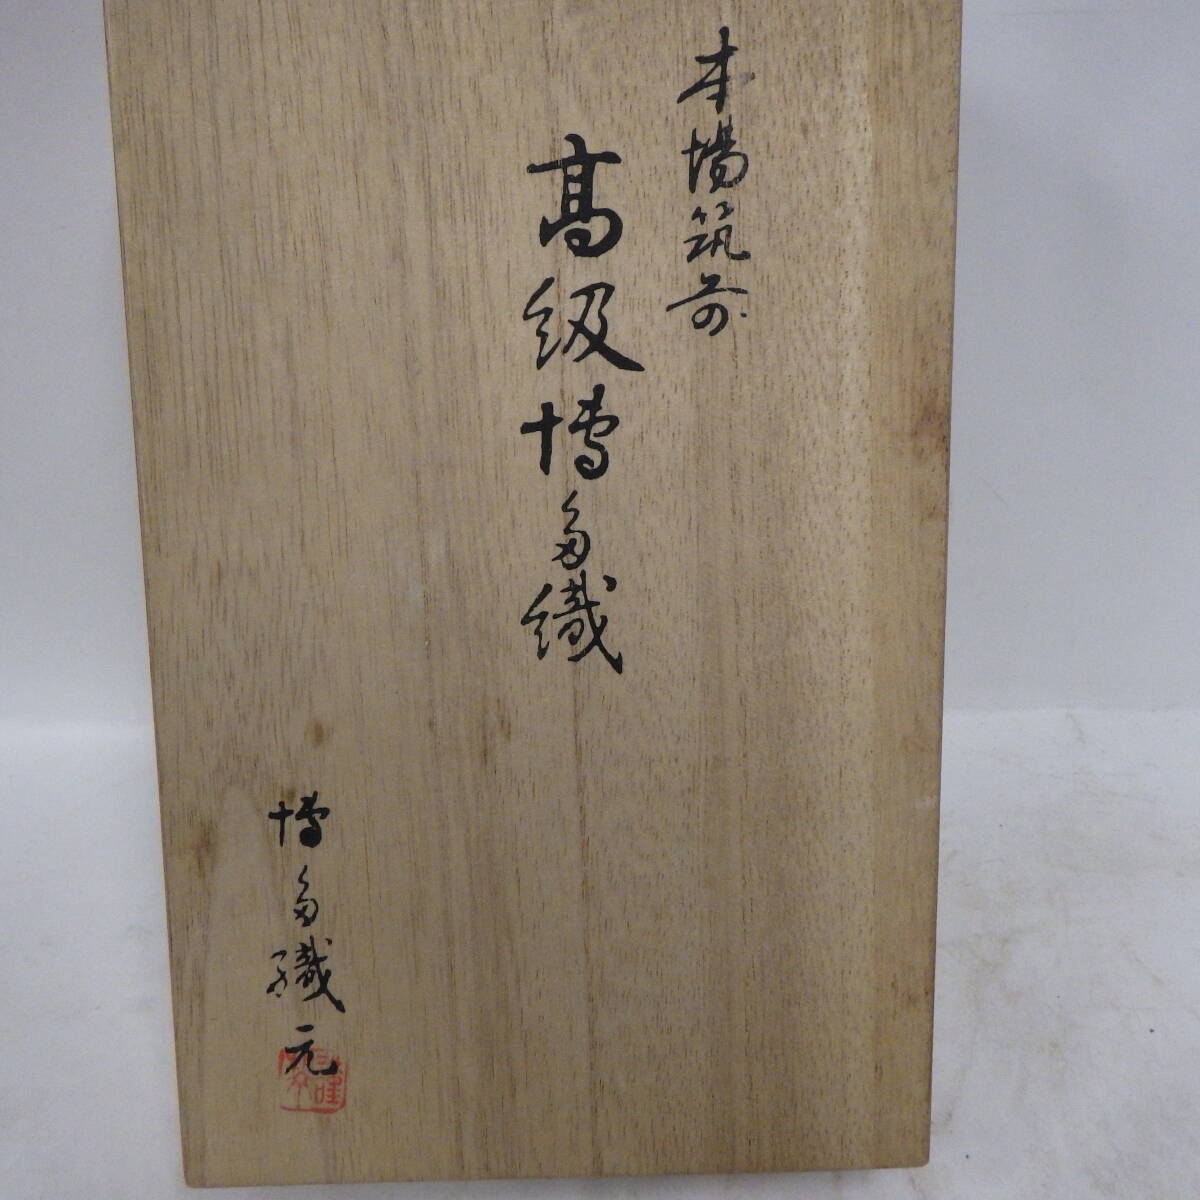 本場筑前
高級博多織
博多織元